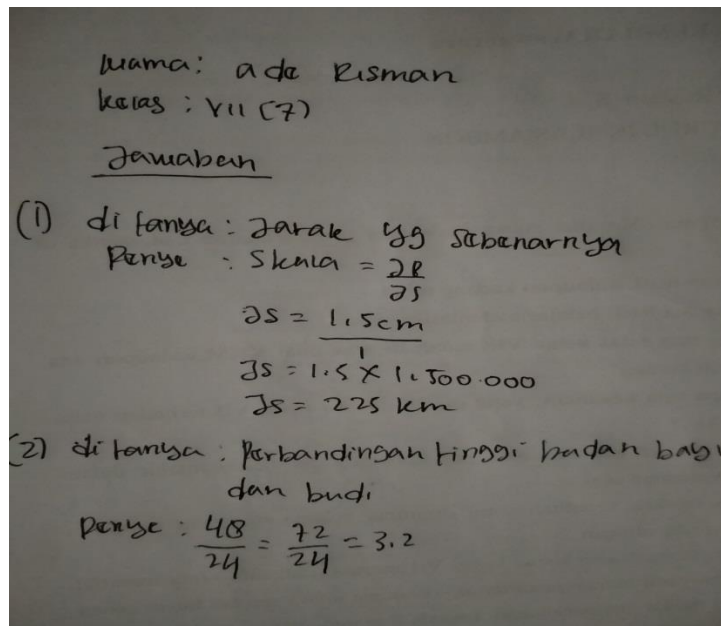 Nama: ade Risman
kelas : VII (7)
Jawaban
(1) di tanya : Jarak yg sebenarnya
Penye : Skala = JP
JS
JS = 1,5cm
1
JS = 1.5 X 1.500.000
JS = 225 km
(2) di tanya : Perbandingan tinggi badan bayi
dan budi
Penye : 48/24 = 72/24 = 3.2